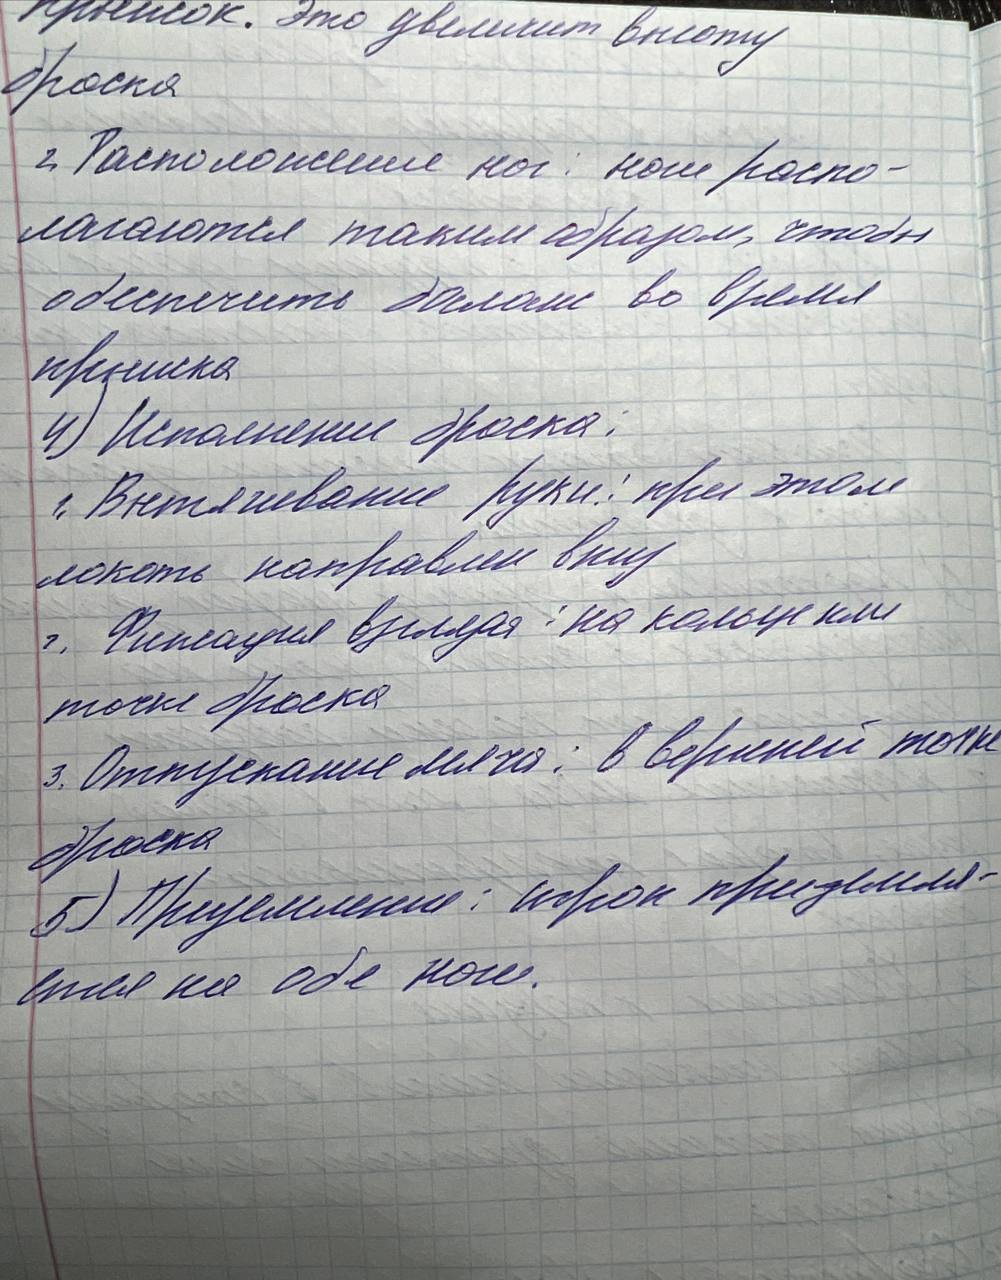 прыжок. Это увеличит высоту
броска
2. Расположение ног: ноги распо-
лагаются таким образом, чтобы
обеспечить баланс во время
прыжка
4) Исполнение броска:
1. Вытягивание руки: при этом
локоть направлен вниз
2. Фиксация взгляда: на кольце или
точке броска
3. Отпускание мяча: в верхней точке
броска
5) Приземление: игрок приземля-
ется на обе ноги.